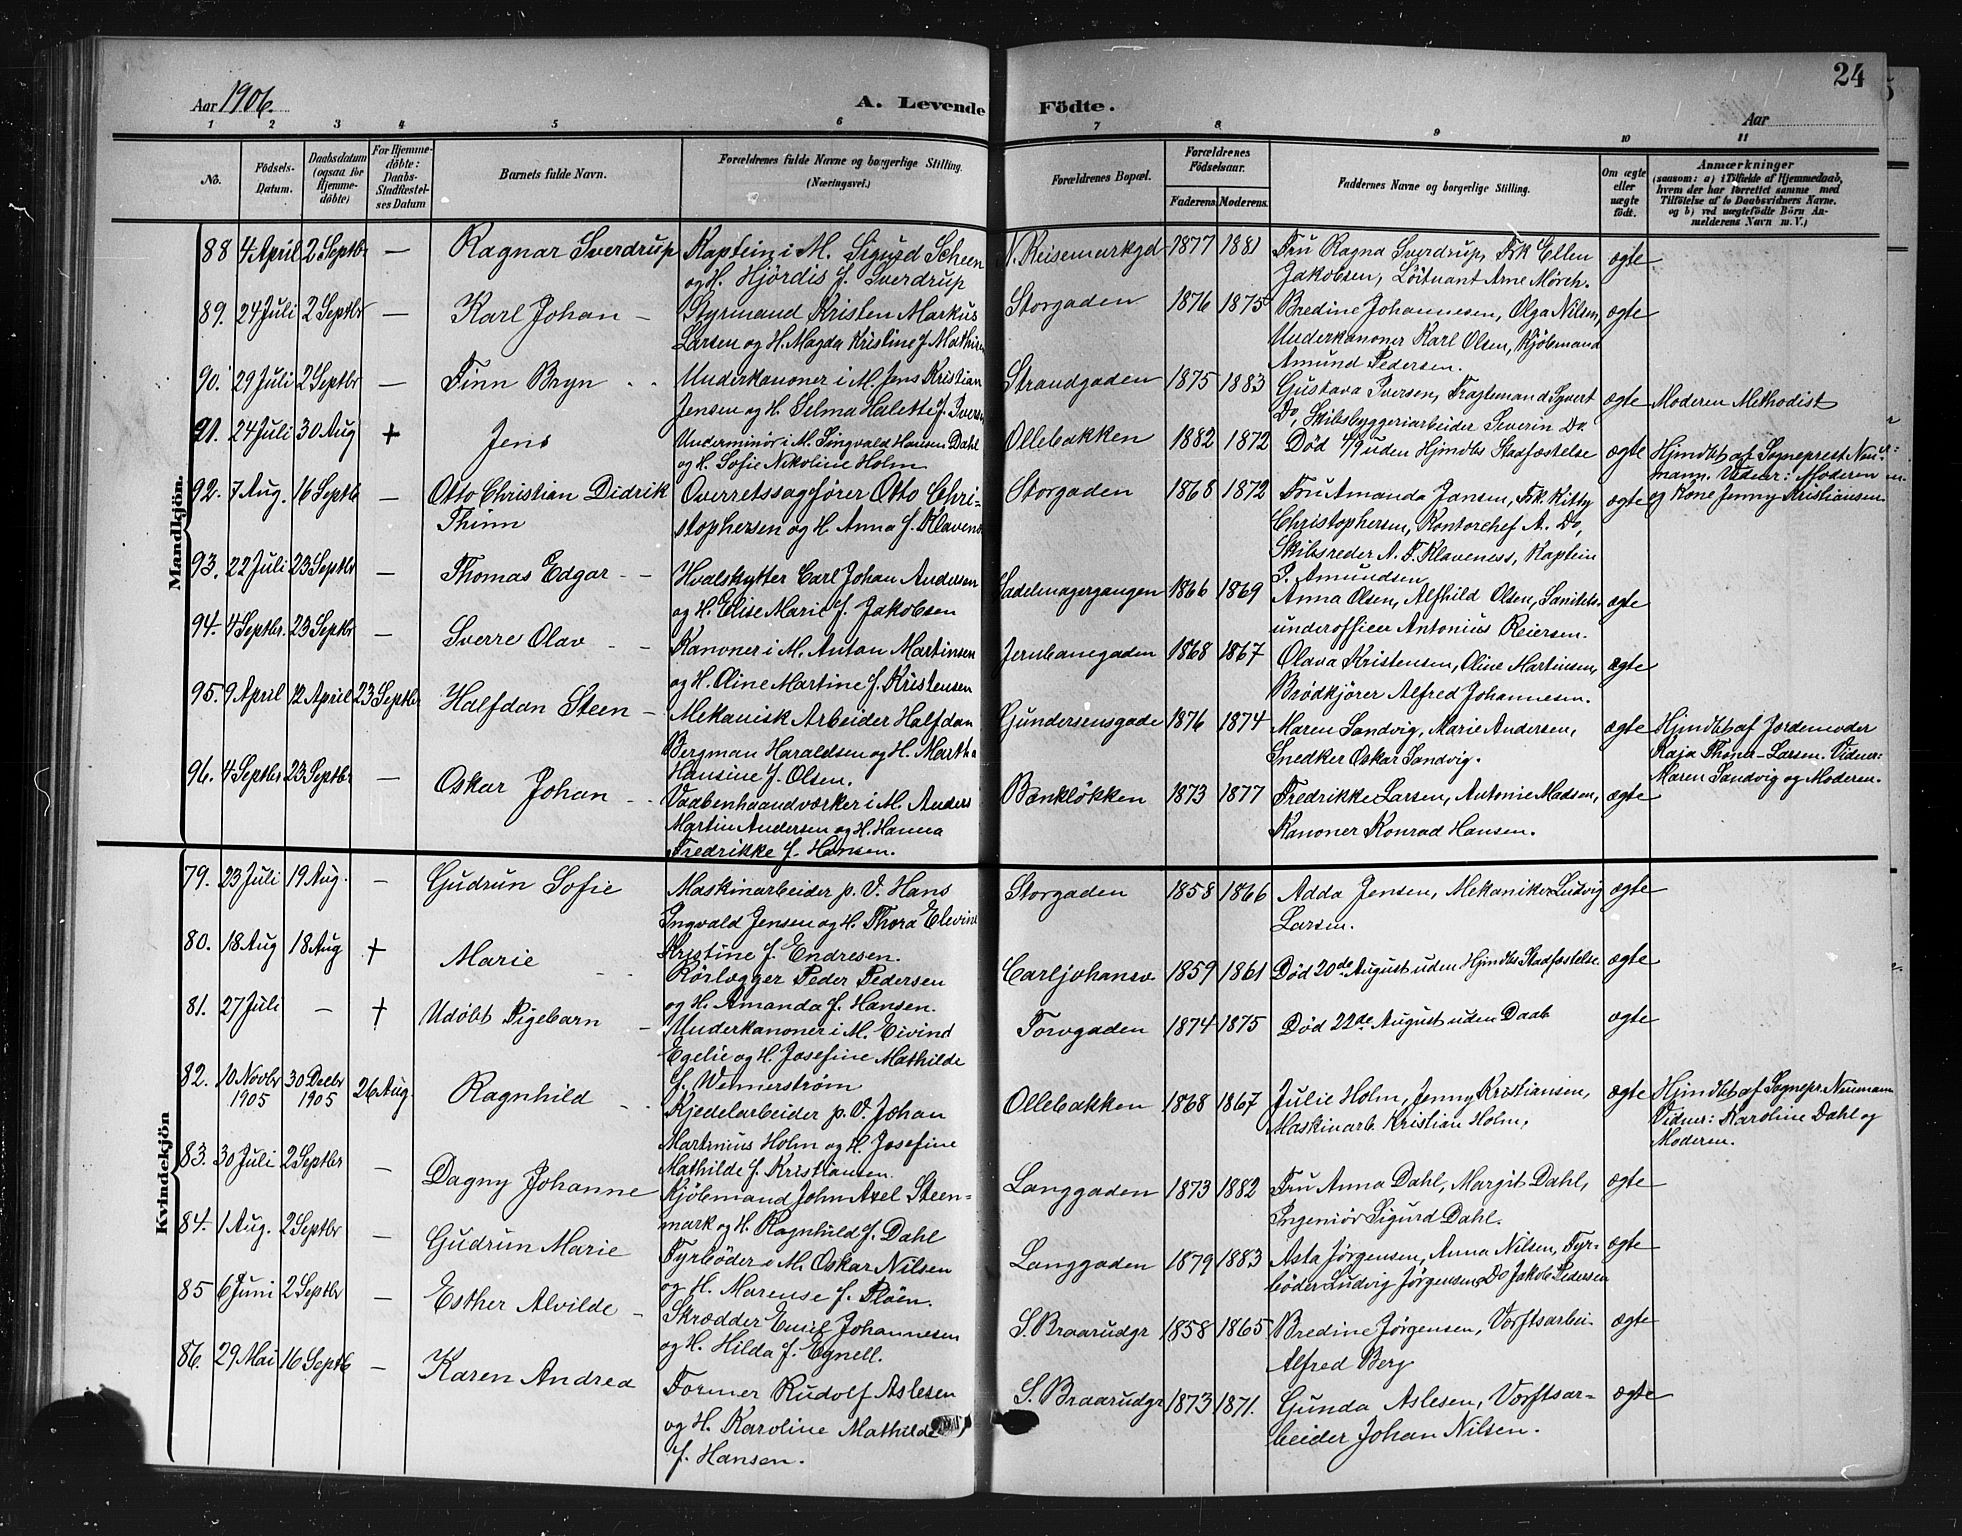 Aar 1906.
A. Levende Födte.
Aar
24
1 2 3 4 5 6 7 8 9 10 11
No.
Födsels-Datum.
Daabsdatum (ogsaa for Hjemme-döbte)
For Hjemme-döbte: Daabs-Stadfæstelses Datum
Barnets fulde Navn.
Forældrenes fulde Navne og borgerlige Stilling. (Næringsvei.)
Forældrenes Bopæl.
Forældrenes Födselsaar.
Faderens. Moderens.
Faddernes Navne og borgerlige Stilling.
Om ægte eller uægte födt.
Anmærkninger
(saasom: a) i Tilfælde af Hjemmedaab, hvem der har forrettet samme med Tilföielse af to Daabsvidners Navne, og b) ved uægtefödte Börn Anmelderens Navn m. V.)
Mandkjön.
88 4 April 2 Septbr — Ragnar Sverdrup Kaptein i M. Sigurd Scheen N. Keisemarkgd 1877 1881 Fru Ragna Sverdrup, Frk Ellen ægte
og H. Hjördis f. Sverdrup Jakobsen, Löitnant Arne Mörch.
89. 24 Juli 2 Septbr — Karl Johan — Styrmand Kristen Markus Storgaden 1876 1875 Bredine Johannesen, Olga Nilsen, ægte
Larsen og H. Magda Kristine f. Mathisen Underkanoner Karl Olsen, Kjöbmand
Amund Pedersen.
90. 29 Juli 2 Septbr — Finn Bryn Underkanoner i M. Jens Kristian Strandgaden 1875 1883 Gustava Iversen, Fragtemand Syvert ægte Moderen Methodist
Jensen og H. Selma Halette f. Iversen Do, Skibsbyggeriarbeider Severin Do.
91. 24 Juli 30 Aug + Jens Underminör i M. Singvald Hansen Dahl Ollebakken 1882 1872 Död 4/9 uden Hjmdbts Stadfæstelse ægte Hjmdbt af Sogneprest Neu-
og H. Sofie Nikoline Holm mann. Vidner: Moderen
92. 7 Aug. 16 Septb — Otto Christian Didrik Overretssagförer Otto Chri- Storgaden 1868 1872 Fru Amanda Jansen, Frk. Kitty ægte og Kone Jenny Kristiansen
Thinn stophersen og H. Anna f. Klavenes Christophersen, Kontorchef A. Do,
Skibsreder A. F. Klaveness, Kaptein
P. Amundsen
93. 22 Juli 23 Septbr — Thomas Edgar — Hvalskytter Carl Johan Andersen Sadelmagergangen 1866 1869 Anna Olsen, Alfhild Olsen, Sanitets- ægte
og H. Elise Marie f. Jakobsen underofficer Antonius Reiersen.
94. 4 Septbr. 23 Septbr — Sverre Olav — Kanoner i M. Anton Martinsen Jernbanegaden 1868 1867 Olava Kristensen, Oline Martinsen, ægte
og H. Oline Martine f. Kristensen Brödkjörer Alfred Johannesen.
95. 9 April 12 April 23 Septbr Halfdan Steen — Mekanisk Arbeider Halfdan Gundersensgade 1876 1874 Maren Sandvig, Marie Andersen, ægte Hjmdbt af Jordemoder
Bergman Haraldsen og H. Martha Snedker Oskar Sandvig. Kaja Thona-Larsen. Vidner:
Hansine f. Olsen. Maren Sandvig og Moderen.
96. 4 Septbr 23 Septbr — Oskar Johan Vaabenhaandværker i M. Anders Bankløkken 1873 1877 Fredrikke Larsen, Antonie Madsen, ægte
Martin Andersen og H. Hanna Kanoner Konrad Hansen.
Fredrikke f. Hansen.
Kvindekjön
79. 23 Juli 19 Aug. — Gudrun Sofie Maskinarbeider p. V. Hans Storgaden 1858 1866 Adda Jensen, Mekaniker Ludvig ægte
Ingvald Jensen og H. Thora Elevine Larsen.
Kristine f. Endresen.
80. 18 Aug 18 Aug + Marie Rörlægger Peder Pedersen Carljohansv 1859 1861 Död 20de August uden Hjmdbts Stadfæstelse ægte
og H. Amanda f. Hansen.
81. 27 Juli — + Udöbt Pigebarn — Underkanoner i M. Eivind Torvgaden 1874 1875 Död 22de August uden Daab ægte
Egelie og H. Josefine Mathilde
f. Wennerström
82. 10 Novbr 1905 30 Decbr 1905 26 Aug Ragnhild Kjedelarbeider p. V. Johan Ollebakken 1868 1867 Julie Holm, Jenny Kristiansen, ægte Hjmdbt af Sognepr. Neumann
Martinius Holm og H. Josefine Maskinarb. Kristian Holm, Vidner: Karoline Dahl og
Mathilde f. Kristiansen. Moderen.
83. 30 Juli 2 Septbr — Dagny Johanne Kjöbmand John Axel Steen- Langgaden 1873 1882 Fru Anna Dahl, Margit Dahl, ægte
mark og H. Ragnhild f. Dahl Ingeniör Sigurd Dahl.
84. 1 Aug. 2 Septbr — Gudrun Marie Fyrböder i M. Oskar Nilsen Langgaden 1879 1883 Asta Jørgensen, Anna Nilsen, Fyr- ægte
og H. Marense f. Plöen. böder Ludvig Jørgensen, Do Jakob Pedersen
85 6 Juni 2 Septbr — Esther Alvilde — Skrædder Emil Johannesen S. Braarudgr 1858 1865 Bredine Jørgensen, Værftsarbei- ægte
og H. Hilda f. Egnell. Alfred Berg
86. 29 Mai 16 Septb — Karen Andrea Former Rudolf Aslesen S. Braarudgr 1873 1871. Gunda Aslesen, Værftsar- ægte
og H. Karoline Mathilde beider Johan Nilsen.
f. Hansen.